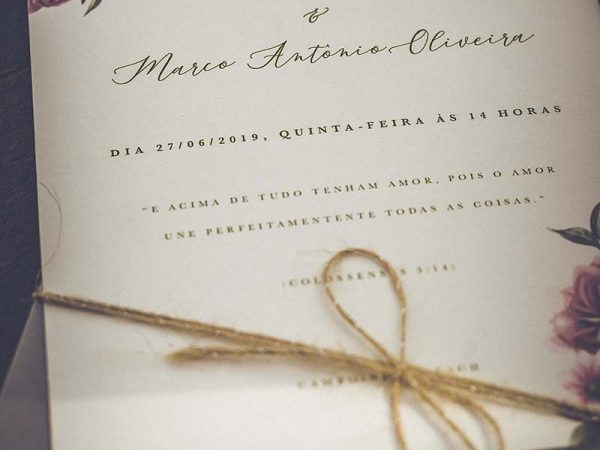 &
Marco Antônio Oliveira
DIA 27/06/2019, QUINTA-FEIRA ÀS 14 HORAS
“E ACIMA DE TUDO TENHAM AMOR, POIS O AMOR
UNE PERFEITAMENTENTE TODAS AS COISAS.”
(COLOSSENSES 3:14)